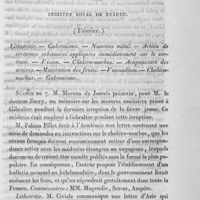 INSTITUT ROYAL DE FRANCE.
(Février.)
Lithotritie. — Galvanisme. — Nouveau métal. — Action de
certaines substances appliquées immédiatement sur le cer-
veau. — Vision. — Choléra-morbus. — Acupuncture des
artères. — Maturation des fruits. — Vanadium. — Choléra-
morbus. — Galvanisme.
SÉANCE DU 7. M. Moreau de Jonnès présente, pour M. le
docteur Barry, un mémoire sur les mesures sanitaires prises à
Gibraltar pendant la dernière irruption de la fièvre jaune. Ce
médecin avait été employé à Gibraltar pendant cette irruption.
M. Fabien Pillet écrit à l'Académie une lettre contenant une
série de demandes ou instructions sur le choléra-morbus, que les
savans devraient être invités, suivant lui, à remplir, afin de
recueillir les résultats sous la forme de
pulaire. En conséquence, l'auteur propose l'établissement d'un
bulletin personnel ou hebdomadaire, dont le gouvernement
ferait les frais, et qui serait envoyé à toutes les communes de
France. Commissaires : MM. Magendie, Serres, Ampère.
Lithotritie. M. Civiale communique une lettre d'Asie qui